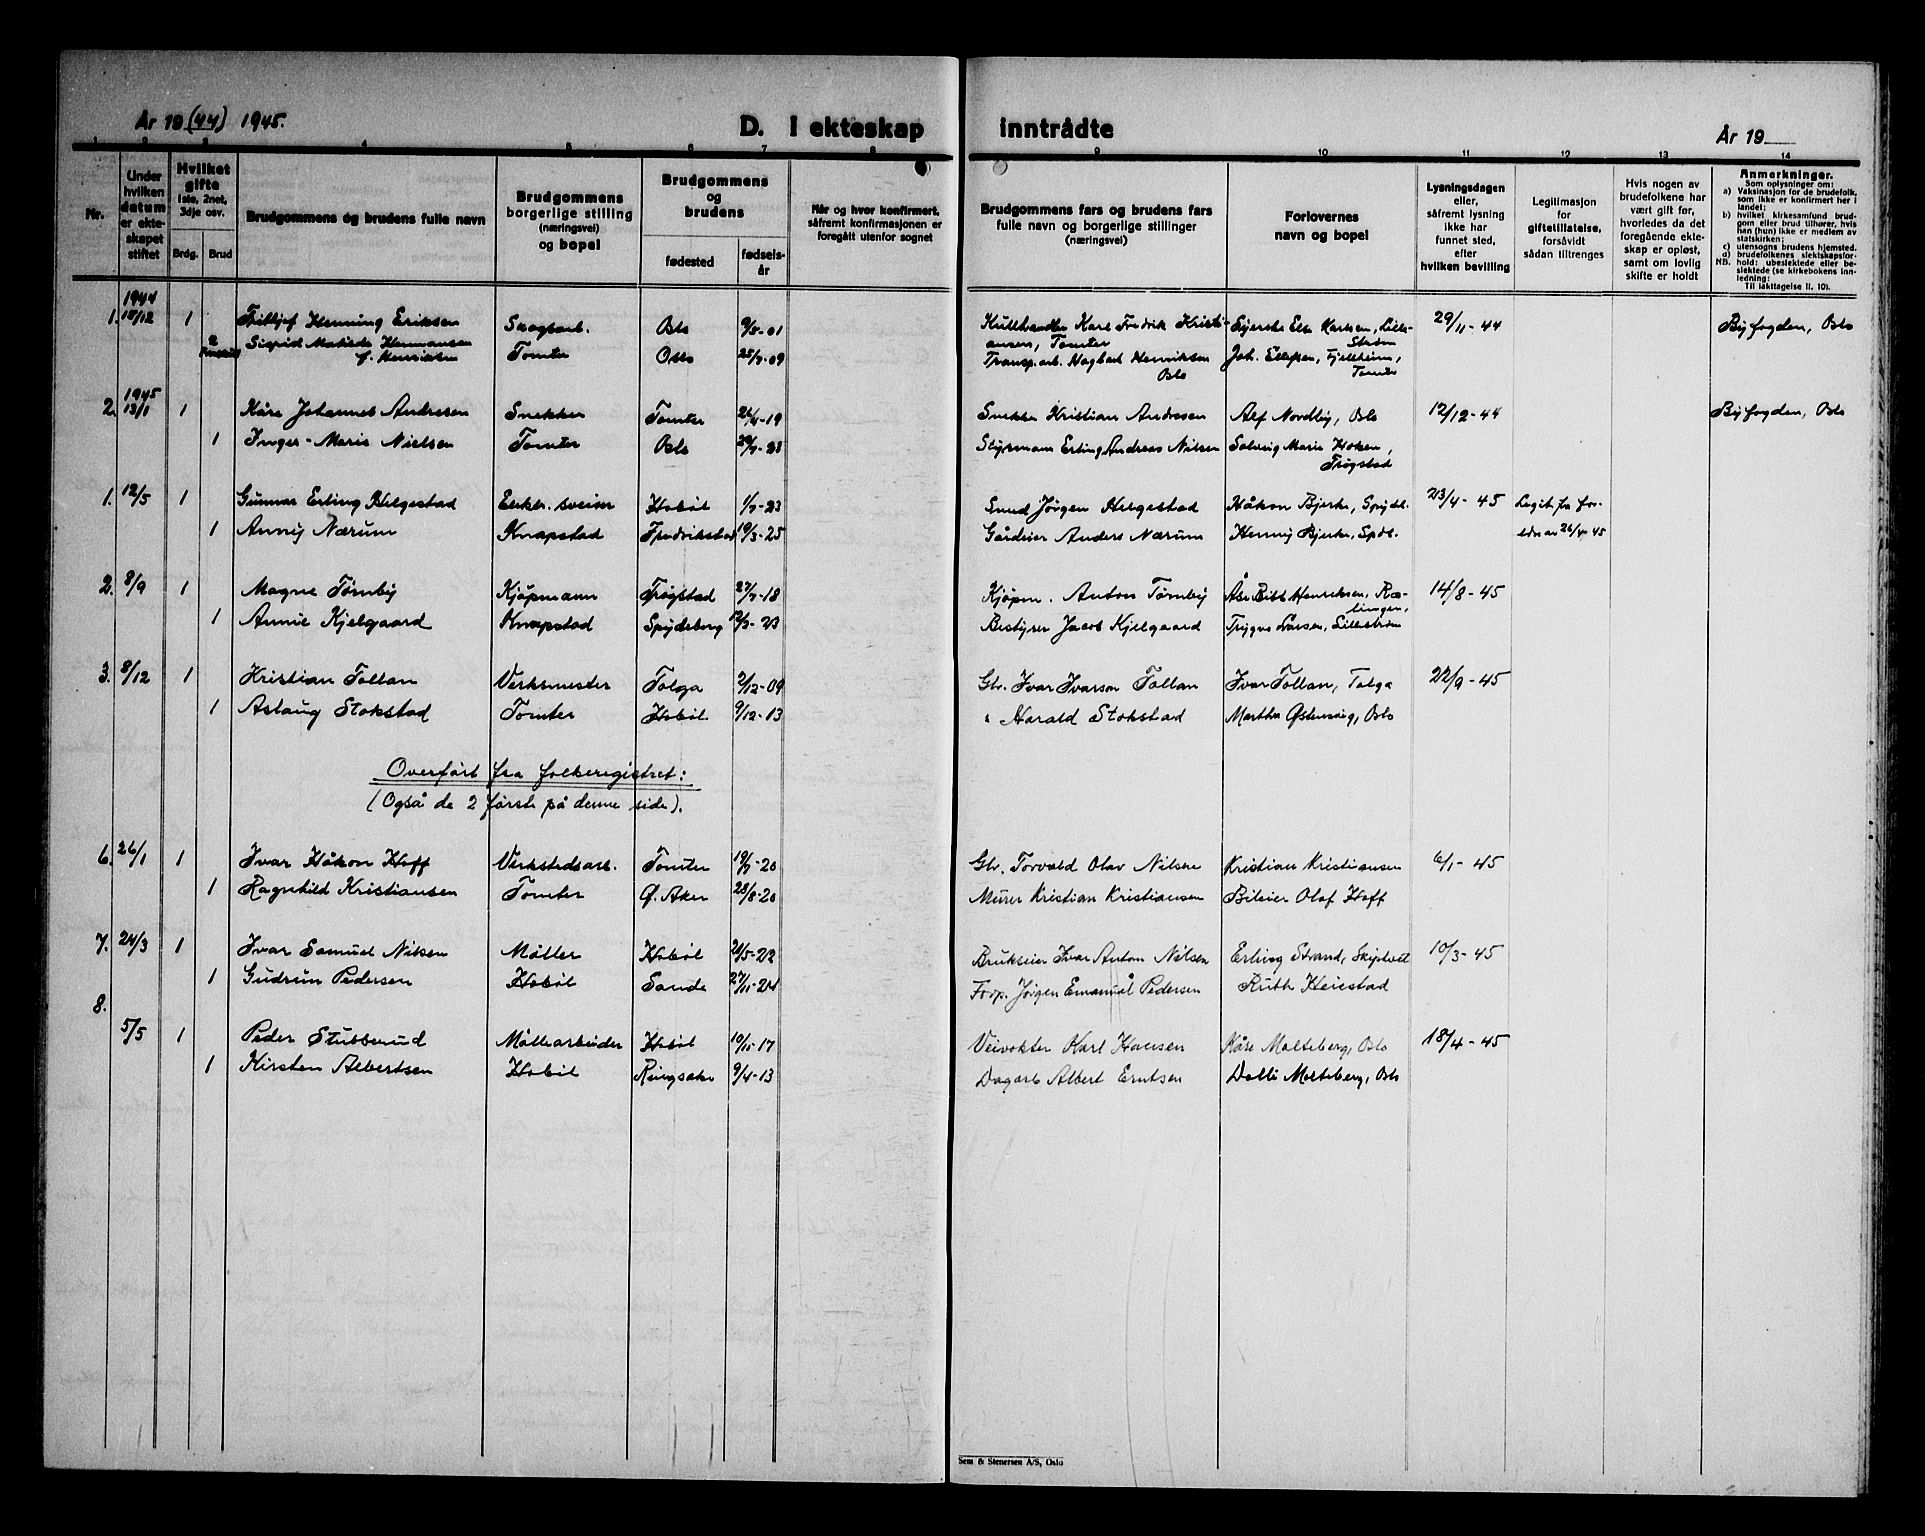 År 19(44) 1945.
D. I ekteskap inntrådte
År 19
1 2 3 4 5 6 7 8 9 10 11 12 13 14
Nr.
Under hvilken datum er ekteskapet stiftet
Hvilket gifte
1ste, 2net, 3dje osv.
Brdg. Brud
Brudgommens og brudens fulle navn
Brudgommens borgerlige stilling (næringsvei) og bopel
Brudgommens og brudens
fødested
fødselsår
Når og hvor konfirmert, såfremt konfirmasjonen er foregått utenfor sognet
Brudgommens fars og brudens fars fulle navn og borgerlige stillinger (næringsvei)
Forlovernes navn og bopel
Lysningsdagen eller, såfremt lysning ikke har funnet sted, efter hvilken bevilling
Legitimasjon for giftetillatelse, forsåvidt sådan tiltrenges
Hvis nogen av brudefolkene har vært gift før, hvorledes da det foregående ekteskap er opløst, samt om lovlig skifte er holdt
Anmerkninger.
Som oplysninger om:
a) Vaksinasjon for de brudefolk, som ikke er konfirmert her i landet;
b) hvilket kirkesamfund brudgom eller brud tilhører, hvis han (hun) ikke er medlem av statskirken;
c) utensogns brudens hjemsted.
d) brudefolkenes slektskapsforhold: ubeslektede eller beslektede (se kirkebokens innledning:
NB.
Til iakttagelse II. 10).
1944
1. 15/12 1 Fridtjof Henning Eriksen Skogsarb. Oslo 9/5-01 Kullhandler Karl Fredrik Kristiansen, Tomter Else Karlsen, Lillestrøm 29/11-44 Byfogden, Oslo
2 Sigrid Matilde Hermansen f. Henriksen Tomter Oslo 25/7-09 Transp.arb. Hagbart Henriksen Oslo Joh. Ellefsen, Fjellheim, Tomter
1945
2. 13/1 1 Kåre Johannes Andresen Snekker Tomter 26/4-19 Snekker Kristian Andresen Alf Nordby, Oslo 12/12-44 Byfogden, Oslo
1 Inger-Marie Nielsen Tomter Oslo Styrmann Erling Andreas Nilsen Solveig Marie Haken, Trøgstad
1. 12/5 1 Gunnar Erling Helgestad Elektr. sveiser Hobøl 1/7-23 Smed Jørgen Helgestad Håkon Bjerke, Spydeb. 23/4-45 Legit. fra for-
1 Anny Nærum Knapstad Fredrikstad 19/3-25 Gårdeier Anders Nærum Henny Bjerke, Spdb. eldre av 26/4 45
2. 8/9 1 Magne Tømby Kjøpmann Trøgstad 27/7-18 Kjøpm. Anton Tømby Åse Britt Henriksen, Rælingen, 14/8-45
1 Annie Kjelgaard Knapstad Spydeberg Bestyrer Jacob Kjelgaard Trygve Larsen, Lillestrøm
3. 8/12 1 Kristian Tollan Verksmester Tolga 2/12-09 Gbr. Ivar Ivarson Tollan Ivar Tollan, Tolga 22/9-45
1 Aslaug Stokstad Tomter Hobøl 9/12-13 " Harald Stokstad Martha Østensvig, Oslo
Overført fra folkeregistret:
(Også de 2 første på denne side).
6. 26/1 1 Ivar Håkon Hoff Verkstedsarb. Tomter 19/7-20 Gbr. Torvald Olav Nilsen Kristian Kristiansen 6/1-45
1 Ragnhild Kristiansen Tomter Ø. Aker 28/8-20 Murer Kristian Kristiansen Bileier Olaf Hoff
7. 24/3 1 Ivar Samuel Nilsen Møller Hobøl 21/5-22 Brukseier Ivar Anton Nilsen Erling Strand, Skiptvet 10/3-45
1 Gudrun Pedersen Hobøl Sande 27/11-24 Forp. Jørgen Emanuel Pedersen Ruth Heiestad
8.
5/5 1 Peder Stubberud Møllearbeider Hobøl 10/10-17 Veivokter Karl Hansen Kåre Molteberg, Oslo 18/4-45
1 Kirsten Albertsen Hobøl Ringsaker 9/4-13 Dagarb Albert Erntsen Dolli Molteberg, Oslo
Sem & Stenersen A/S, Oslo